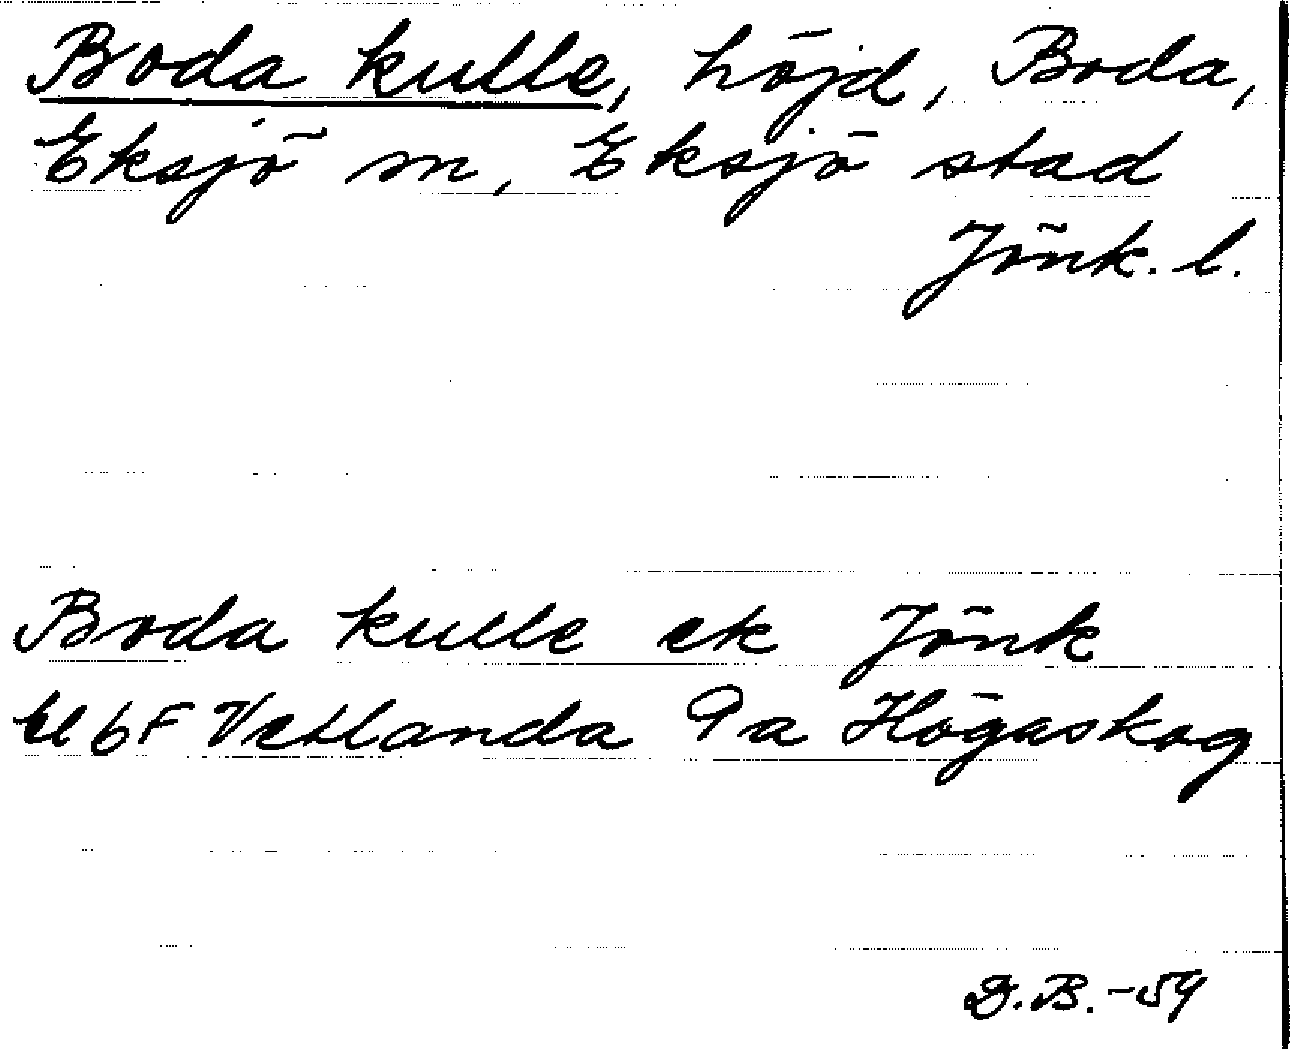 Boda kulle, höjd, Boda,
Eksjö sn, Eksjö stad
Jönk. l.
Boda kulle ek Jönk
bl 6F Vetlanda 9a Högaskog
D.B.-59